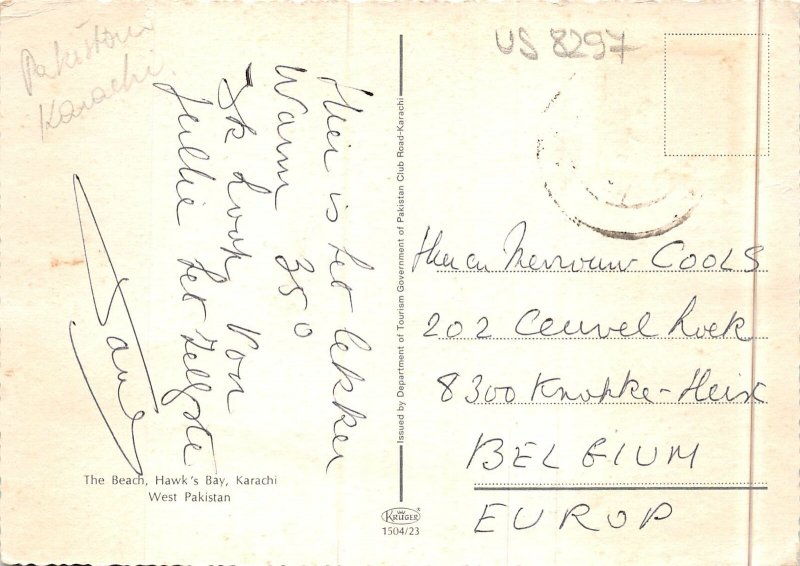 Pakistan
Karachi
US 8297
Hier is het lekker
Warm 35°
Ik hoop van
jullie het zelfde
The Beach, Hawk's Bay, Karachi
West Pakistan
Issued by Department of Tourism Government of Pakistan Club Road-Karachi
KRÜGER
1504/23
Heer en Mevrouw COOLS
202
8300 Knokke-Heist
BELGIUM
EUROP